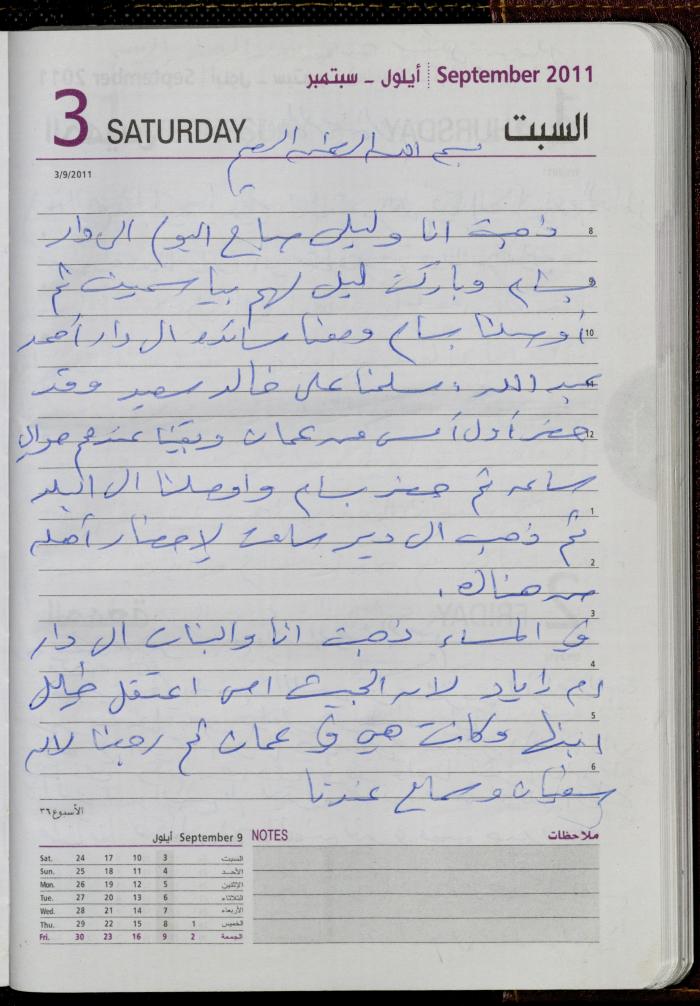 أيلول - سبتمبر September 2011
3 SATURDAY السبت
بسم الله الرحمن الرحيم
3/9/2011
8 ذهبت انا وليلى صباح اليوم الى دار
9 بسام وباركت ليلى لهم بياسمين ثم
10 أوصلنا بسام ومعنا سائده الى دار أحمد
11 عبد الله وسلمنا على خالد سعيد وقد
12 حضر أول أمس من عمان وبقينا عندهم حوالي
ساعه ثم حضر بسام واوصلنا الى البلد
1 ثم ذهب الى دير لإحضار أهله
2 من هناك.
3 في المساء ذهبت انا والبنات الى دار
4 ام اياد لان الجيش امس اعتقل خليل
5 ابنها وكانت هي في عمان ثم رجعنا لان
6 سفيان وسماح عندنا
الأسبوع ٣٦
September 9 أيلول
Sat. 24 17 10 3 السبت
Sun. 25 18 11 4 الأحد
Mon. 26 19 12 5 الإثنين
Tue. 27 20 13 6 الثلاثاء
Wed. 28 21 14 7 الأربعاء
Thu. 29 22 15 8 1 الخميس
Fri. 30 23 16 9 2 الجمعة
NOTES ملاحظات